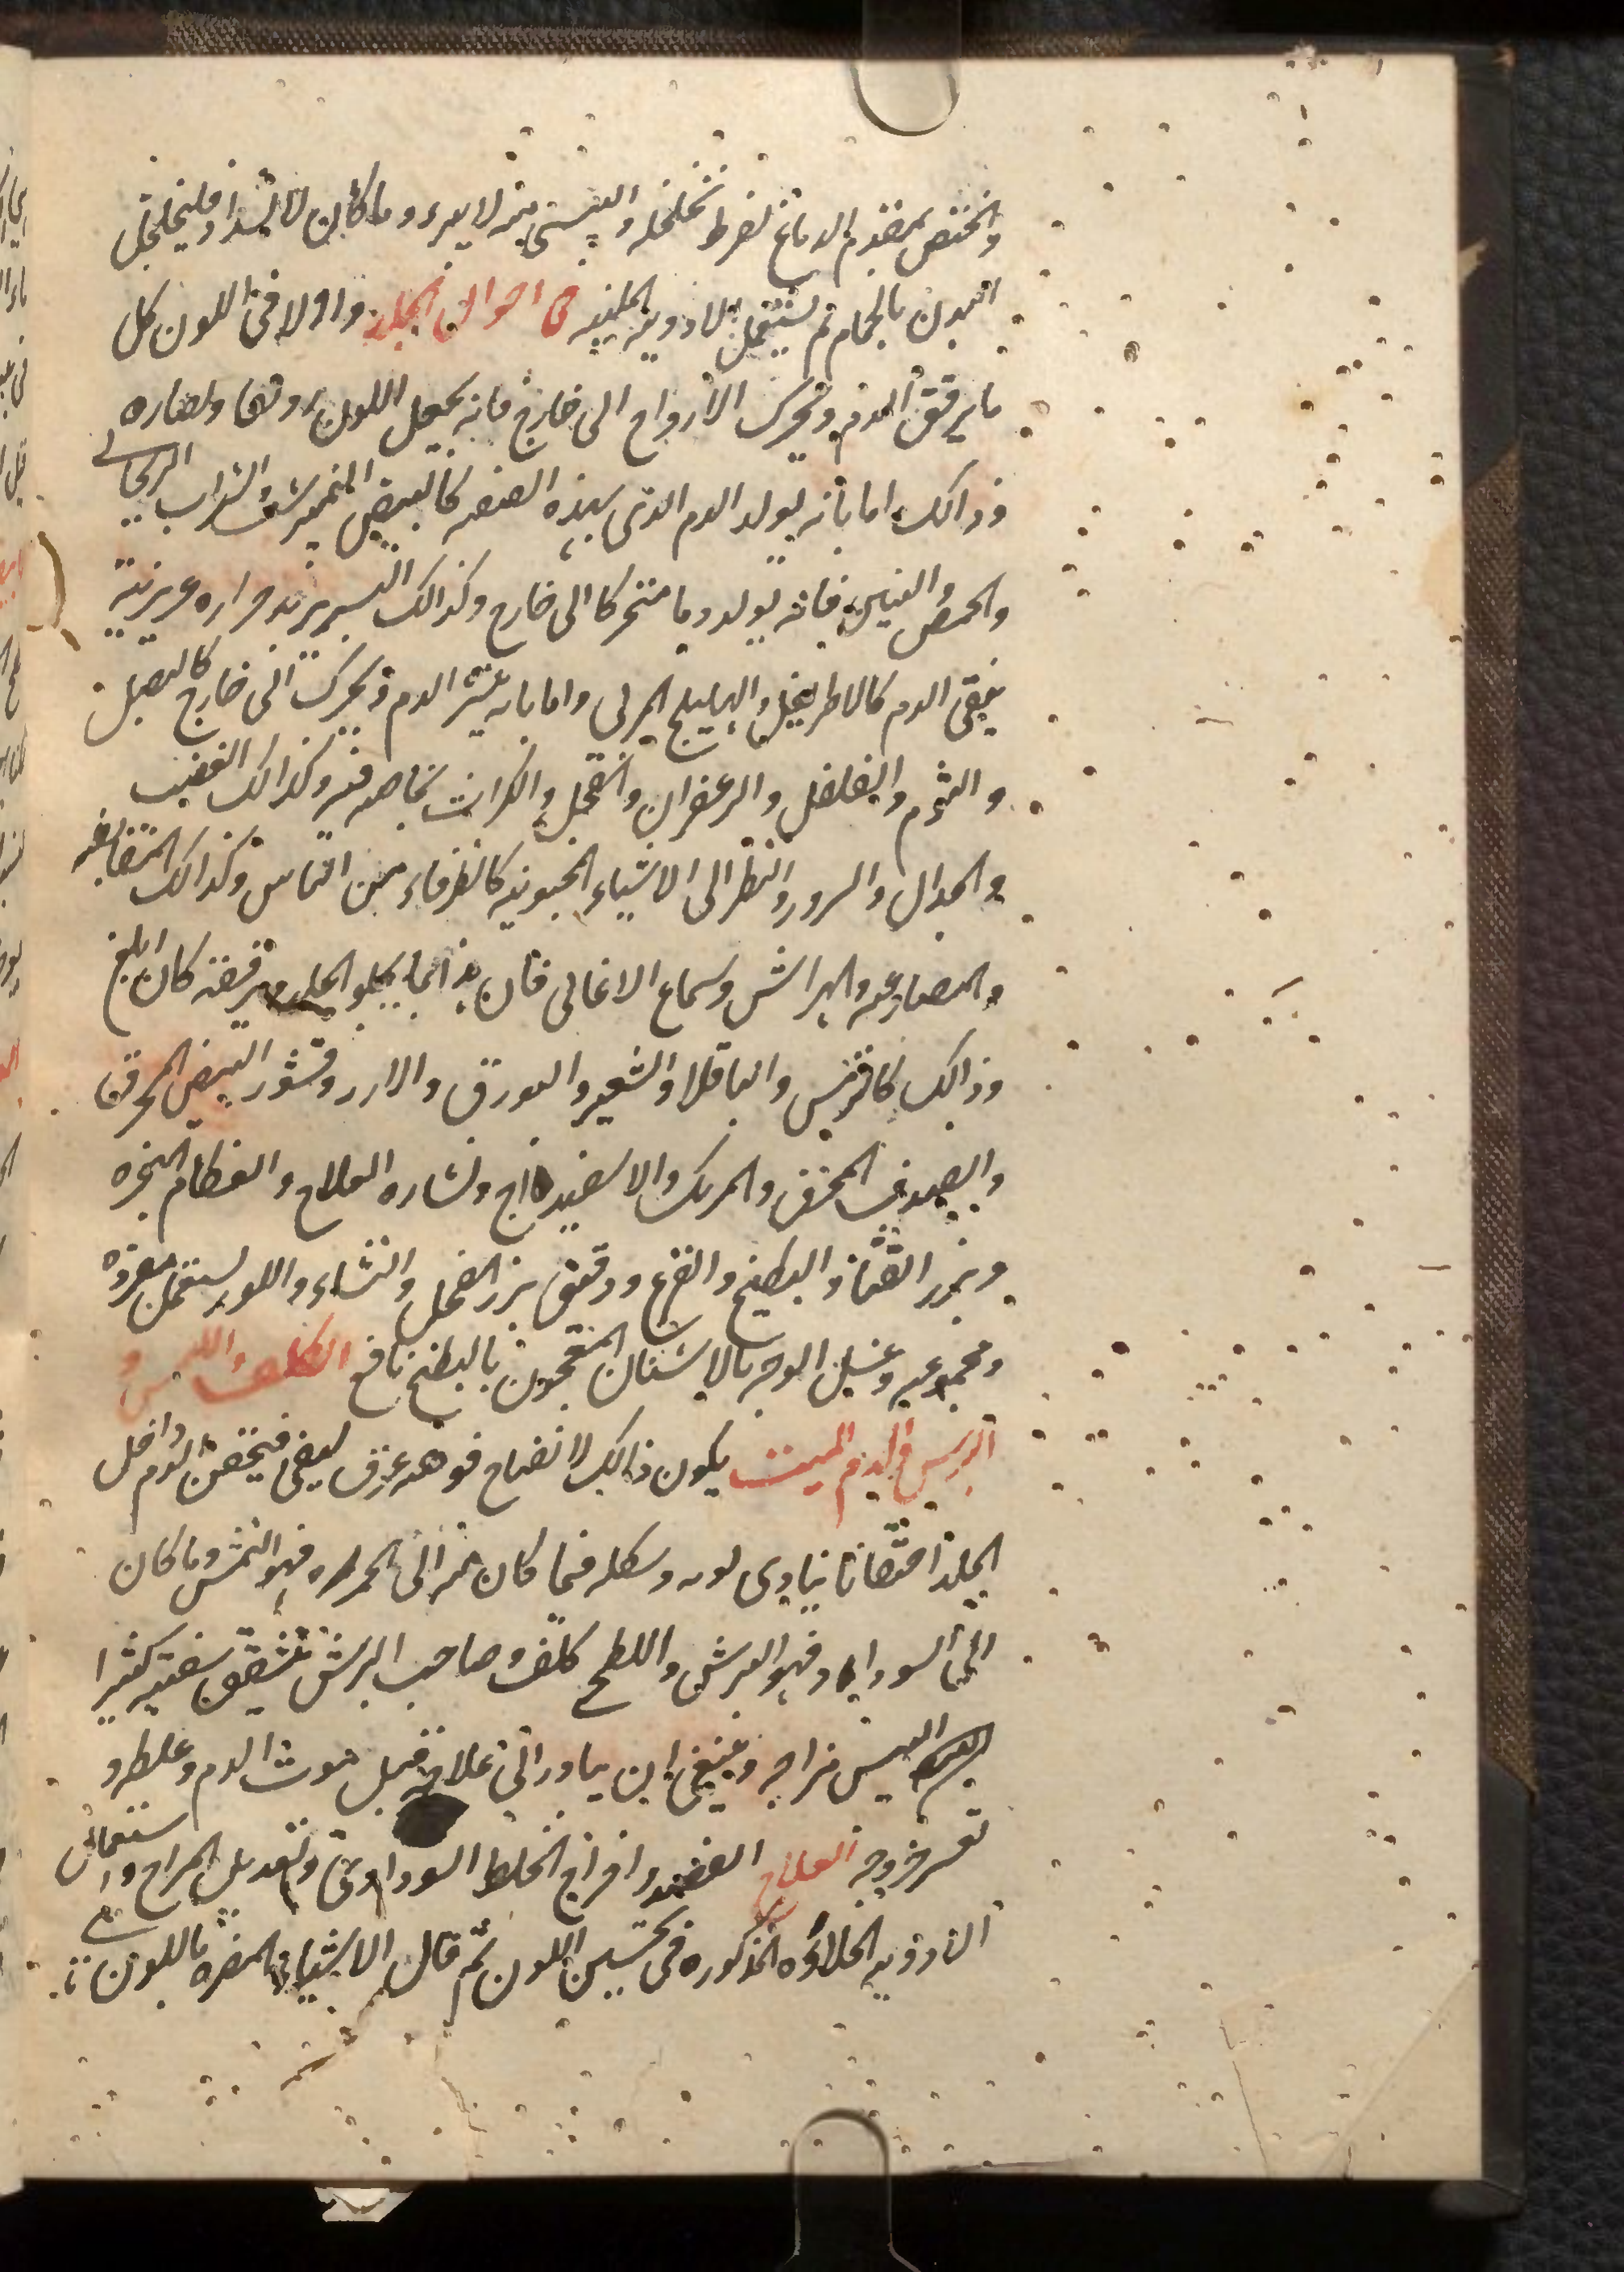 والمختص بمقدم الدماغ لفرط تخلخله واليبسى منه لا يبرء وما كان لانسداد فليخلخل
البدن بالحمام ثم يستعمل الادويه الملينه فى احوال الجلد واولا فى اللون كل
ما يرقق الدم ويحرك الارواح الى خارج فانه يجعل اللون رونقا ونضاره
وذالك اما بانه يولد الدم الذى بهذه الصفه كالبيض النيمرشت والشراب الريحانى
والحمص والتين فانه يولد دما متحركا الى خارج وكذالك حراره غريزيته
ينقى الدم كالاطريفل والهليلج المربى واما بانه ينشر الدم ويحرك الى خارج كالبصل
والثوم والفلفل والزعفران والفجل والكراث بخاصه فيه وكذالك الغضب
والجدال والسرور والنظر الى الاشياء المحبوبه كالظرفاء من الناس وكذالك
والمصارعه والهراش وسماع الاغانى فان بذ انما يجلو الجلد ويرققه كان ابلغ
وذالك كالترمس والباقلا والشعير والبورق والارز وقشور البيض المحرق
والصدف المحرق والمرتك والاسفيداج ونشاره العلاج والعظام النخره
وبزر القثا والبطيخ والقرع ودقيق بزر الفجل والنشاء واللوز يستعمل مفرده
ومجموعه وغسل الوجه بالاشنان المعجون بالبطيخ نافع الكلف والنمش و
البرش والدم الميت يكون ذالك لانفتاح فوهه عرق ليفى فيحقن الدم داخل
الجلد احتقانا يتادى لونه وشكله فما كان منه الى الحمره فهو النمش وما كان
الى السواد فهو البرش واللطح كلف وصاحب البرش تتشقق شفتيه كثيرا
ليبس مزاجه وينبغى ان يبادر الى علاجه قبل موت الدم وغلظه و
تعسر خروجه العلاج الفصد واخراج الخلط السوداوى وتعديل المزاج واستعمال
الادويه الجلاؤه المذكوره فى تحسين اللون ثم قال الاشياء المضره باللون